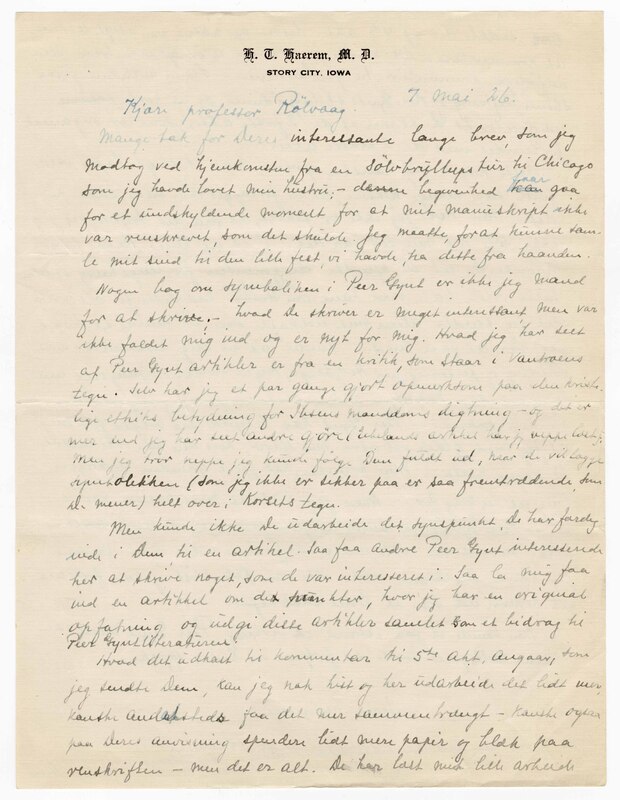 H. T. Haerem, M. D.
STORY CITY, IOWA
7 Mai 26.
Kjære professor Rölvaag.
Mange tak for Deres interessante lange brev, som jeg
modtog ved hjemkomsten fra en sölvbryllupstur til Chicago
som jeg havde lovet min hustru, – denne begivenhed faar gaa
for et undskyldende moment for at mit manuskript ikke
var renskrevet, som det skulde. Jeg maatte, for at kunne sam-
le mit sind til den lille fest, vi havde, ha dette fra haanden.
Nogen bog om symboliken i Peer Gynt er ikke jeg mand
for at skrive. – hvad De skriver er meget interessant, men var
ikke faldet mig ind og er nyt for mig. Hvad jeg har seet
af Peer Gynt artikler er fra en kritik, som staar i vantroens
tegn. Selv har jeg et par gange gjort opmerksom paa den krist-
lige ethiks betydning for Ibsens manddoms digtning – og det er
mer end jeg har seet andre gjöre (artikel har jeg neppe
Men jeg tror neppe jeg kunde følge Dem fuldt ud, naar De vil lægge
symbolikken (som jeg ikke er sikker paa er saa fremtrædende, som
De mener) helt over i Korsets tegn.
Men kunde ikke De udarbeide det synspunkt, De har færdig
inde i Dem, til en artikel. Saa faa andre Peer Gynt interesserede
her at skrive noget, som de var interesseret i. Saa la mig faa
ind en artikkel om de punkter, hvor jeg har en original
opfatning og udgi disse artikler samlet som et bidrag til
Peer Gynt literaturen.
Hvad det udkast til kommentar til 5te Akt, angaar, som
jeg sendte Dem, kan jeg nok hist og her udarbeide det lidt mer,
kanske andetsteds faa det mer sammentrængt – kanske ogsaa
paa Deres anvisning spendere lidt mere papir og blæk paa
renskriften – men det er alt. De har læst mit lille arbeide